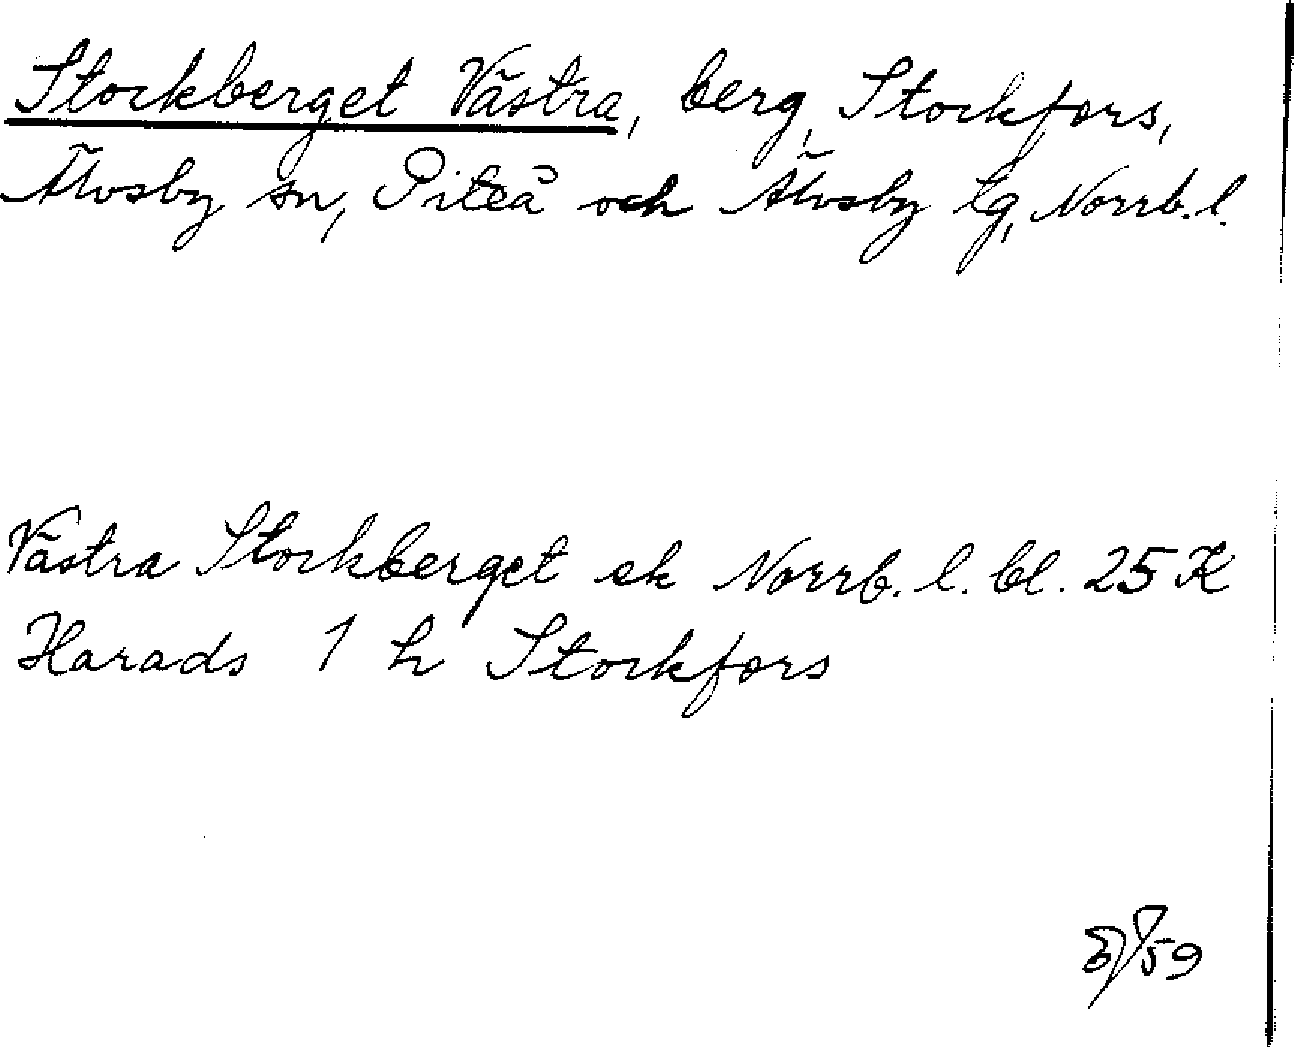 Stockberget Västra, berg, Stockfors,
Älvsby sn, Piteå och Älvsby tg, Norrb. l.
Västra Stockberget ek Norrb. l. bl. 25 K
Harads 1 h Stockfors
59